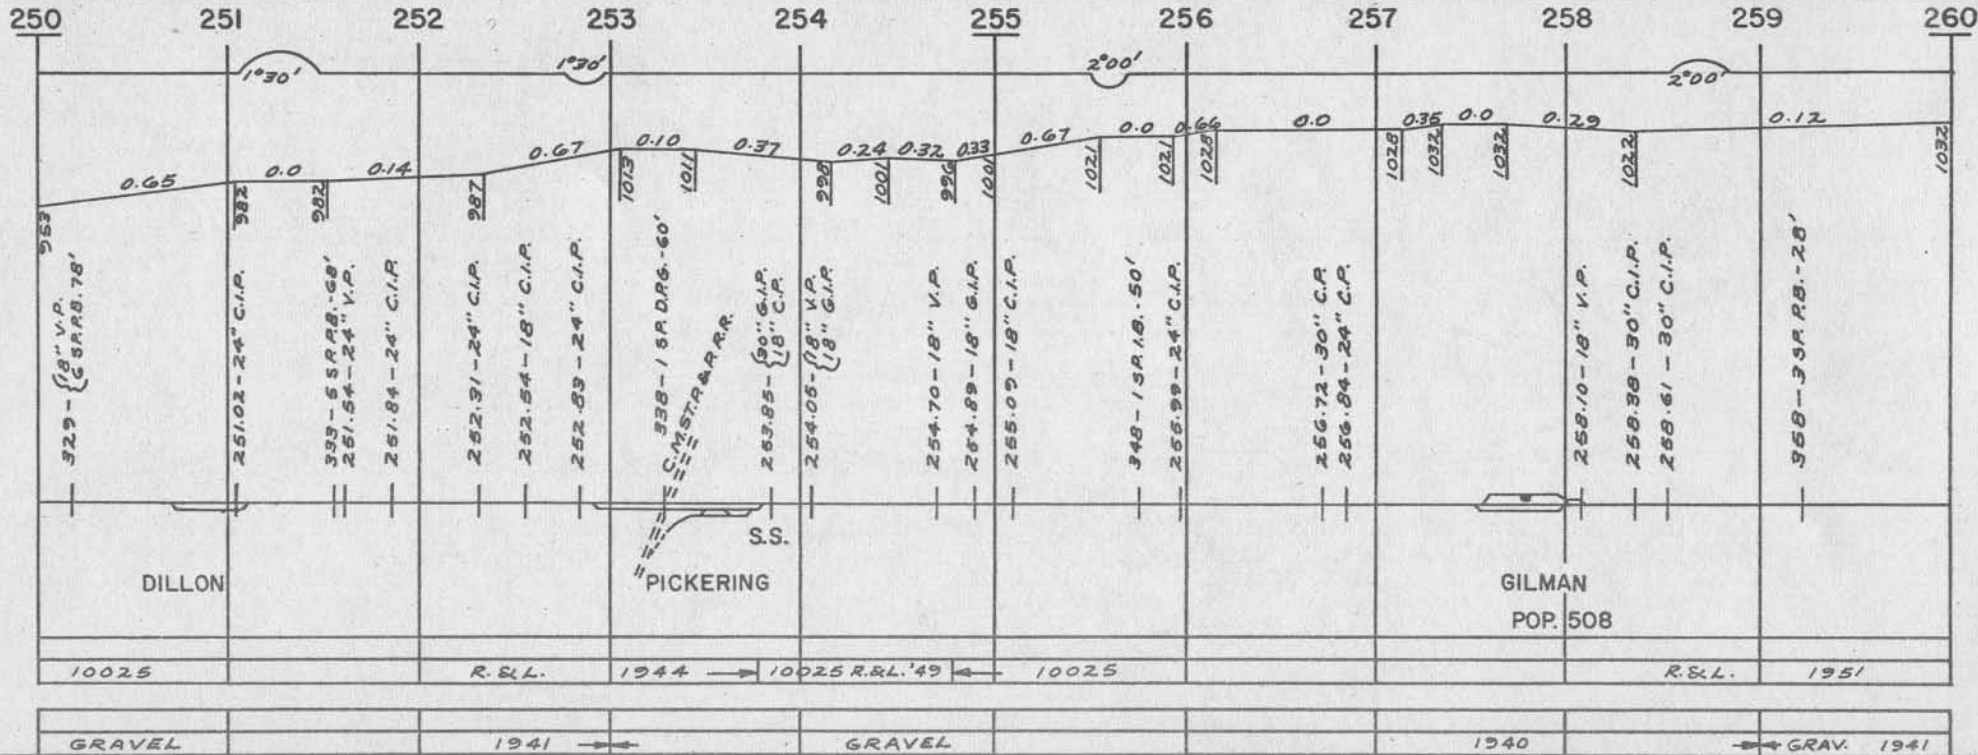 250 251 252 253 254 255 256 257 258 259 260
1°30' 1°30' 2°00' 2°00'
0.65 0.0 0.14 0.67 0.10 0.37 0.24 0.32 0.33 0.67 0.0 0.66 0.0 0.35 0.0 0.29 0.12
953 982 982 987 1013 1011 998 1001 996 1001 1021 1021 1028 1028 1032 1032 1022 1032
329-{18" V.P.
6 S.P.R.B. 78'
251.02-24" C.I.P.
333-5 S.P.R.B.-68'
251.54-24" V.P.
251.84-24" C.I.P.
252.31-24" C.I.P.
252.54-18" C.I.P.
252.83-24" C.I.P.
338-1 SP. D.P.G.-60'
C.M.ST.P. & P. R.R.
253.85-{30" G.I.P.
18" C.P.
254.05-{18" V.P.
18" G.I.P.
254.70-18" V.P.
254.89-18" G.I.P.
255.09-18" C.I.P.
348-1 SP. I.B.-50'
255.99-24" C.I.P.
256.72-30" C.P.
256.84-24" C.P.
258.10-18" V.P.
258.38-30" C.I.P.
258.61-30" C.I.P.
358-3 SP. P.B.-28'
S.S.
DILLON PICKERING GILMAN
POP. 508
10025 R.&L. 1944 10025 R.&L.'49 10025 R.&L. 1951
GRAVEL 1941 GRAVEL 1940 GRAV. 1941